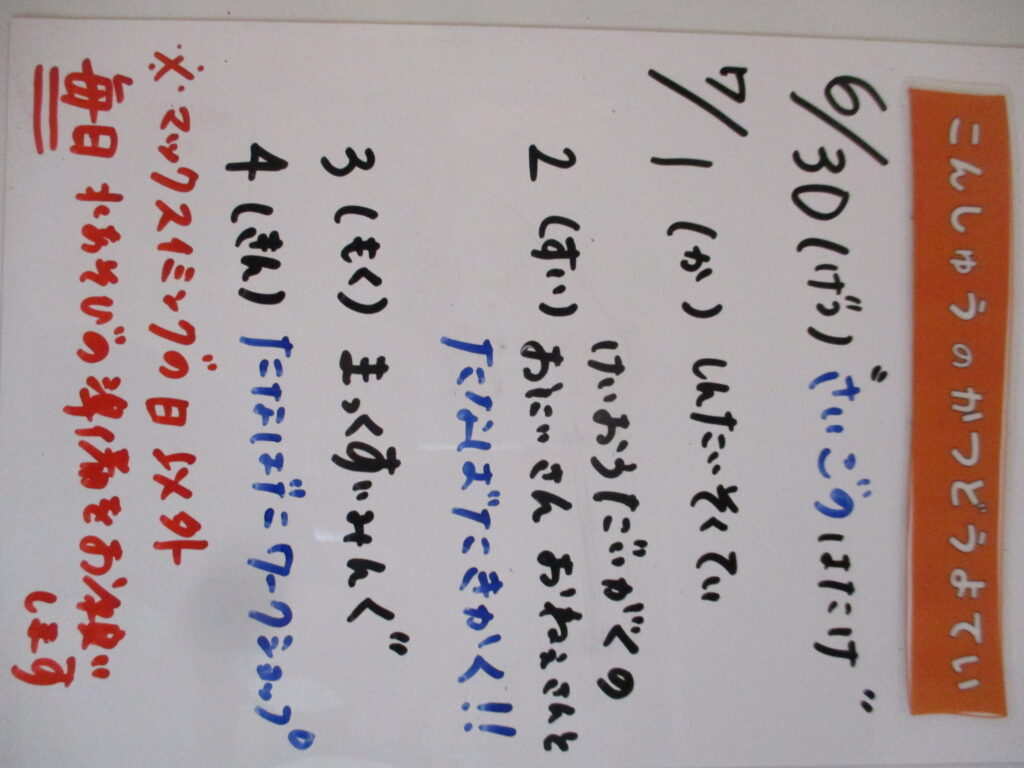 こんしゅうのかつどうよてい
6/30(げつ) "さいごのはたけ"
7/1 (か) しんたいそくてい
けいおうだいがくの
2 (すい) おにいさん おねえさんと
たなばたきかく!!
3 (もく) まっくすいみんぐ
4 (きん) たなばたワークショップ
※マックスイミングの日以外
毎日 水あそびの準備をお願い
します